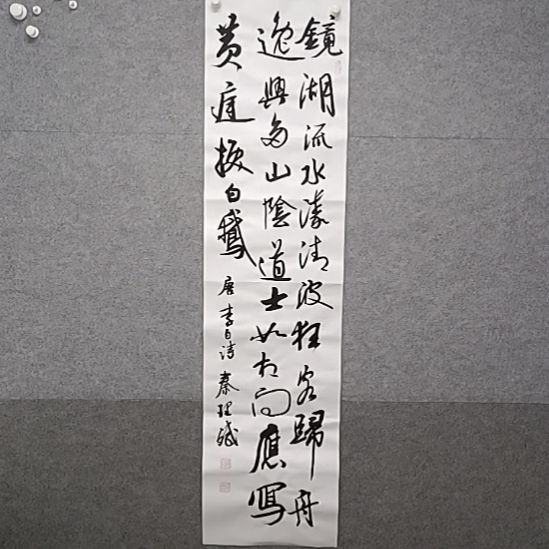 鏡湖流水漾清波狂客歸舟
逸興多山陰道士如相問應寫
黄庭換白鵝 唐李白詩 秦理斌